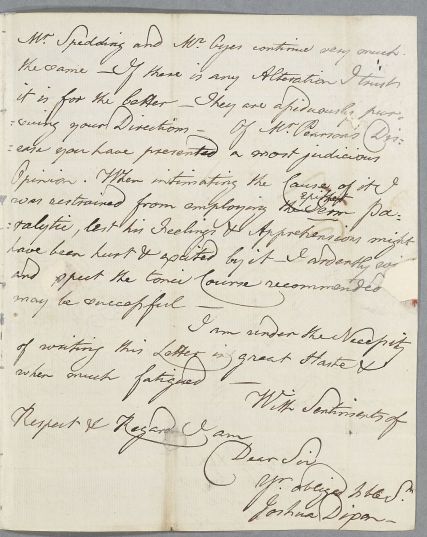 Mr. Spedding and Mr. Gyes continue very much
the same – If there is any Alteration I trust
it is for the better – They are assiduously pur-
=suing your Directions – Of Mr. Pearson's Dis-
=ease you have presented a most judicious
Opinion. When intimating the Cause of it I
was restrained from employing the explicit Term Pa-
=ralytic, lest his Feelings & Apprehensions might
have been hurt & excited by it I ardently
and expect the tonic Course recommended
may be successful –
I am under the Necessity
of writing this Letter in great Haste &
when much fatigued –
With Sentiments of
Respect & Regard I am
Dear Sir
Yr. obliged hble St.
Joshua Dixon –